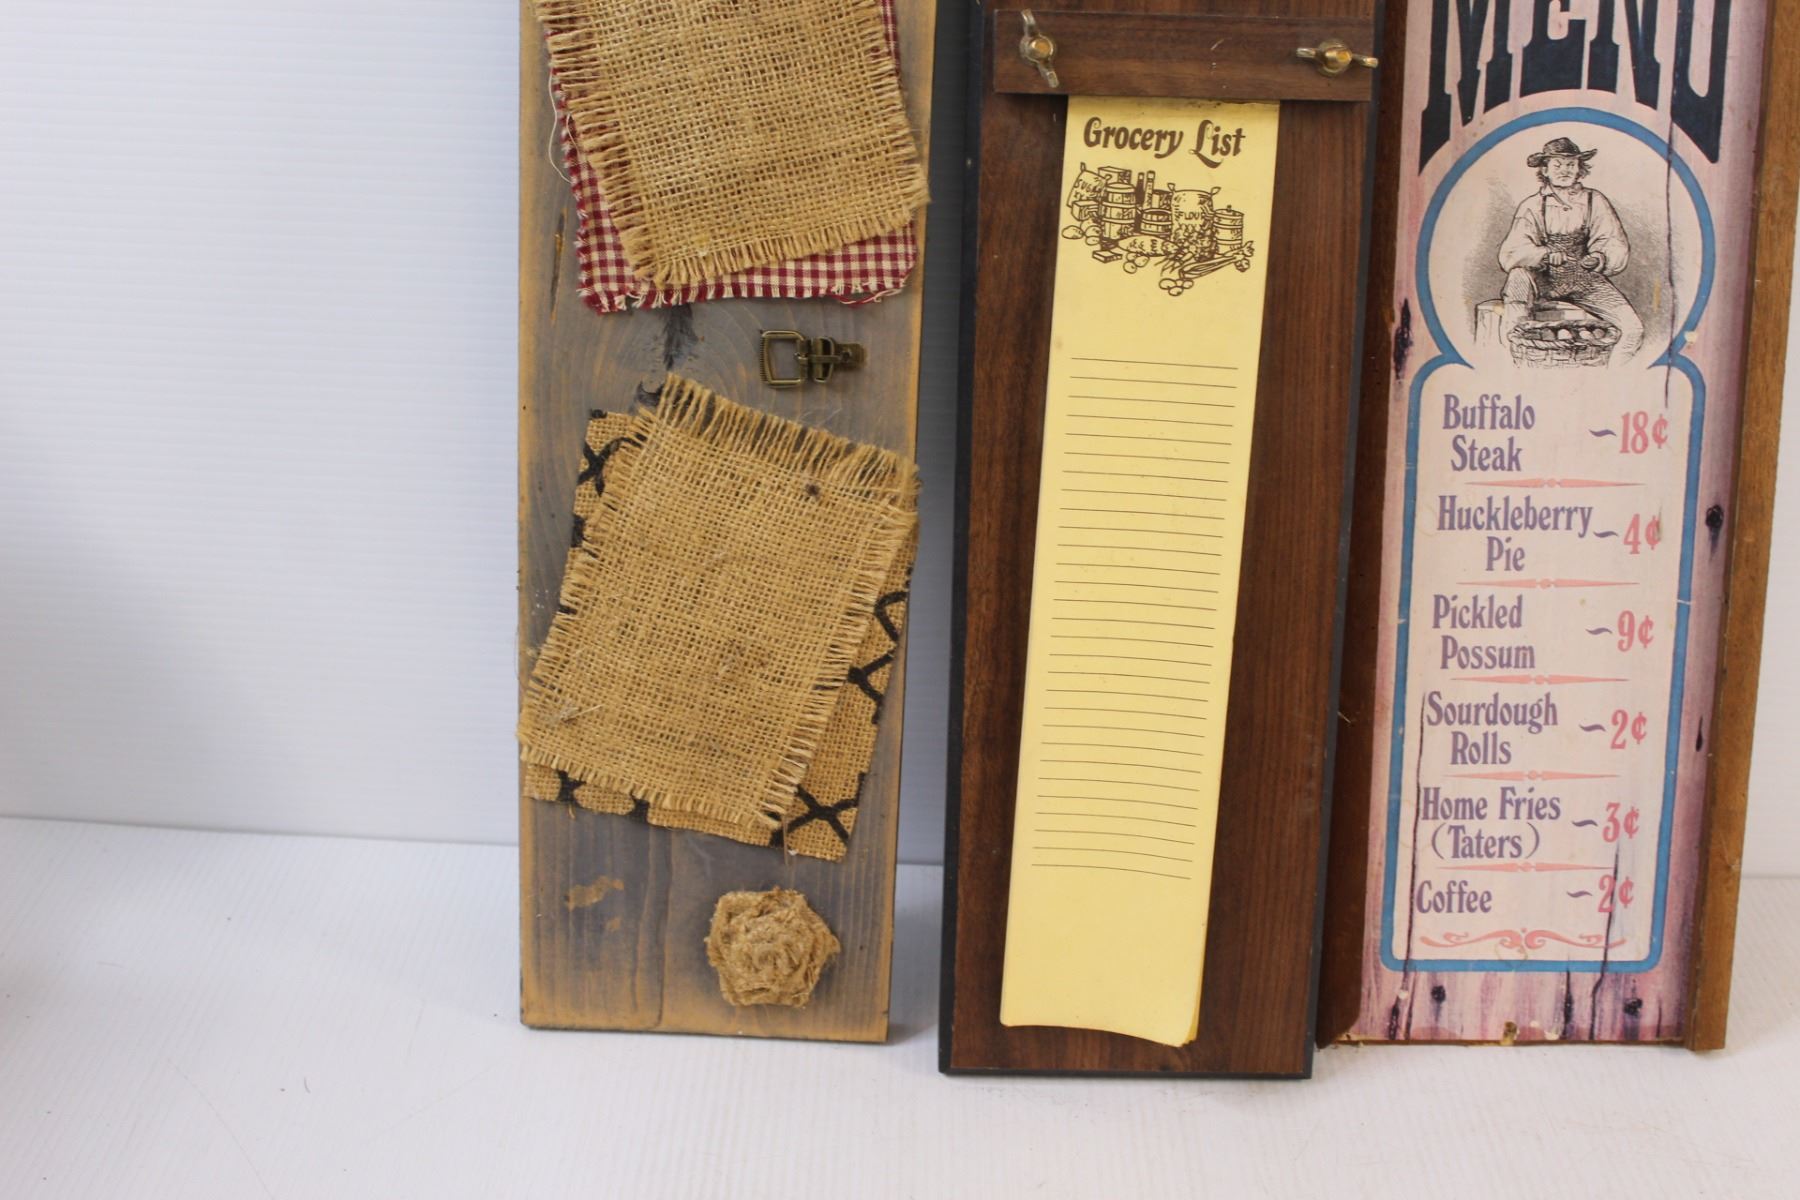 Grocery List
SUGAR
FLOUR
MENU
Buffalo
Steak ~18¢
Huckleberry
Pie ~4¢
Pickled
Possum ~9¢
Sourdough
Rolls ~2¢
Home Fries
(Taters) ~3¢
Coffee ~2¢